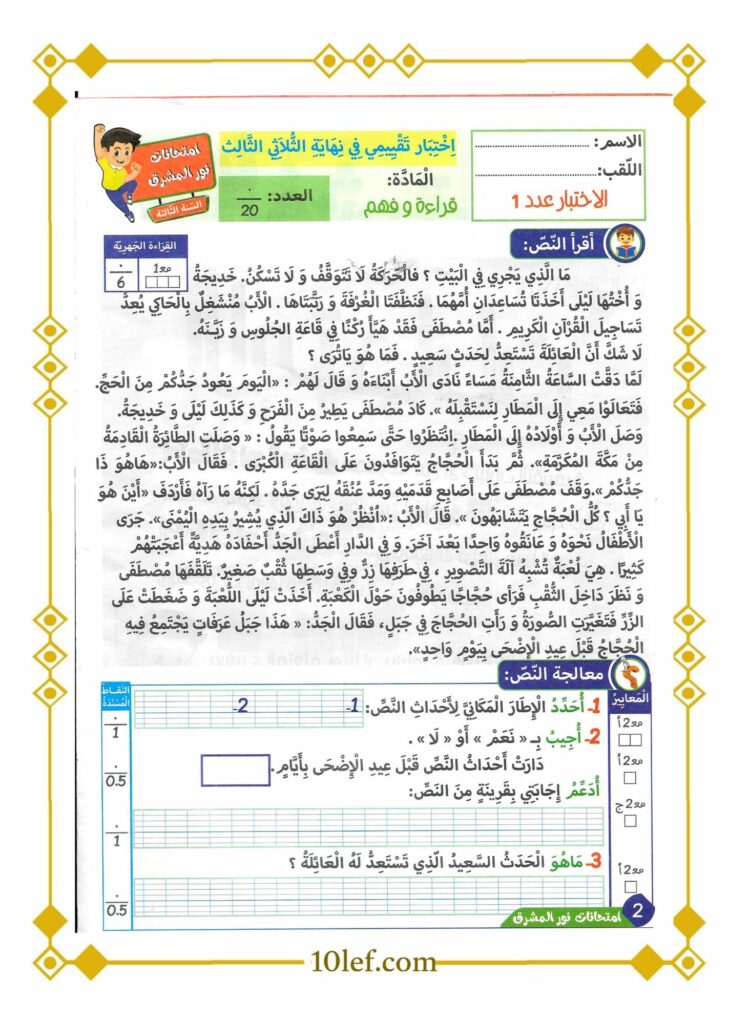 الاسم: ........................
اللّقب: ........................
الاختبار عدد 1
اِخْتِبَار تَقْيِيمِي فِي نِهَايَةِ الثُّلَاثِي الثَّالِث
الْمَادَّة:
قراءة و فهم
العدد: ـــ 20
امتحانات
نور المشرق
السنة الثالثة
أقرأ النّصّ:
القِرَاءة الجَهريّة
مع1
6
مَا الَّذِي يَجْرِي فِي الْبَيْتِ ؟ فالْحَرَكَةُ لَا تَتَوَقَّفُ وَ لَا تَسْكُنُ. خَدِيجَةُ
وَ أُخْتُهَا لَيْلَى أَخَذَتَا تُسَاعِدَانِ أُمَّهُمَا . فَنَظَّفَتَا الْغُرْفَةَ وَ رَتَّبَتَاهَا . الْأَبُ مُنْشَغِلٌ بِالْحَاكِي يُعِدُّ
تَسَاجِيلَ الْقُرْآنِ الْكَرِيمِ . أَمَّا مُصْطَفَى فَقَدْ هَيَّأَ رُكْنًا فِي قَاعَةِ الْجُلُوسِ وَ زَيَّنَهُ.
لَا شَكَّ أَنَّ الْعَائِلَةَ تَسْتَعِدُّ لِحَدَثٍ سَعِيدٍ . فَمَا هُوَ يَاتُرَى ؟
لَمَّا دَقَّتْ السَّاعَةُ الثَّامِنَةُ مَسَاءً نَادَى الْأَبُ أَبْنَاءَهُ وَ قَالَ لَهُمْ : «الْيَومَ يَعُودُ جَدُّكُمْ مِنَ الْحَجِّ.
فَتَعَالَوْا مَعِي إِلَى الْمَطَارِ لِنَسْتَقْبِلَهُ ». كَادَ مُصْطَفَى يَطِيرُ مِنَ الْفَرَحِ وَ كَذَلِكَ لَيْلَى وَ خَدِيجَةُ.
وَصَلَ الْأَبُ وَ أَوْلَادُهُ إِلَى الْمَطَارِ .اِنْتَظَرُوا حَتَّى سَمِعُوا صَوْتًا يَقُولُ : « وَصَلَتِ الطَّائِرَةُ الْقَادِمَةُ
مِنْ مَكَّةَ الْمُكَرَّمَةِ». ثُمَّ بَدَأَ الْحُجَّاجُ يَتَوَافَدُونَ عَلَى الْقَاعَةِ الْكُبْرَى . فَقَالَ الْأَبُ:«هَاهُوَ ذَا
جَدُّكُمْ».وَقَفَ مُصْطَفَى عَلَى أَصَابِعِ قَدَمَيْهِ وَمَدَّ عُنُقَهُ لِيَرَى جَدَّهُ . لَكِنَّهُ مَا رَآهُ فَأَرْدَفَ «أَيْنَ هُوَ
يَا أَبِي ؟ كُلُّ الْحُجَّاجِ يَتَشَابَهُونَ ». قَالَ الْأَبُ :«اُنْظُرْ هُوَ ذَاكَ الّذِي يُشِيرُ بِيَدِهِ الْيُمْنَى». جَرَى
الْأَطْفَالُ نَحْوَهُ وَ عَانَقُوهُ وَاحِدًا بَعْدَ آخَرَ. وَ فِي الدَّارِ أَعْطَى الْجَدُّ أَحْفَادَهُ هَدِيَّةً أَعْجَبَتْهُمْ
كَثِيرًا . هِيَ لُعْبَةٌ تُشْبِهُ آلَةَ التَّصْوِيرِ ، فِي طَرَفِهَا زِرٌّ وفِي وَسَطِهَا ثُقْبٌ صَغِيرٌ. تَلَقَّفَهَا مُصْطَفَى
وَ نَظَرَ دَاخِلَ الثُّقْبِ فَرَأَى حُجَّاجًا يَطُوفُونَ حَوْلَ الْكَعْبَةِ. أَخَذَتْ لَيْلَى اللُّعْبَةَ وَ ضَغَطَتْ عَلَى
الزِّرِّ فَتَغَيَّرَتِ الصُّورَةُ وَ رَأَتِ الْحُجَّاجَ فِي جَبَلٍ، فَقَالَ الْجَدُّ: « هَذَا جَبَلُ عَرَفَاتٍ يَجْتَمِعُ فِيهِ
الْحُجَّاجُ قَبْلَ عِيدِ الْإِضْحَى بِيَوْمٍ وَاحِدٍ».
معالجة النّصّ:
الْمَعايِيرُ
النّقاط المُسْنَدَة
1- أُحَدِّدُ الْإِطَارَ الْمَكَانِيَّ لِأَحْدَاثِ النَّصِّ: 1- 2-
مع2أ
1
2- أُجِيبُ بِـ « نَعَمْ » أَوْ « لَا » .
دَارَتْ أَحْدَاثُ النَّصِّ قَبْلَ عِيدِ الْإِضْحَى بِأَيَّامٍ.
مع2أ
0.5
أُدَعِّمُ إِجَابَتِي بِقَرِينَةٍ مِنَ النَّصِّ:
مع2ج
1
3- مَاهُوَ الْحَدَثُ السَّعِيدُ الّذِي تَسْتَعِدُّ لَهُ الْعَائِلَةُ ؟
مع2أ
0.5
2
امتحانات نور المشرق
10lef.com